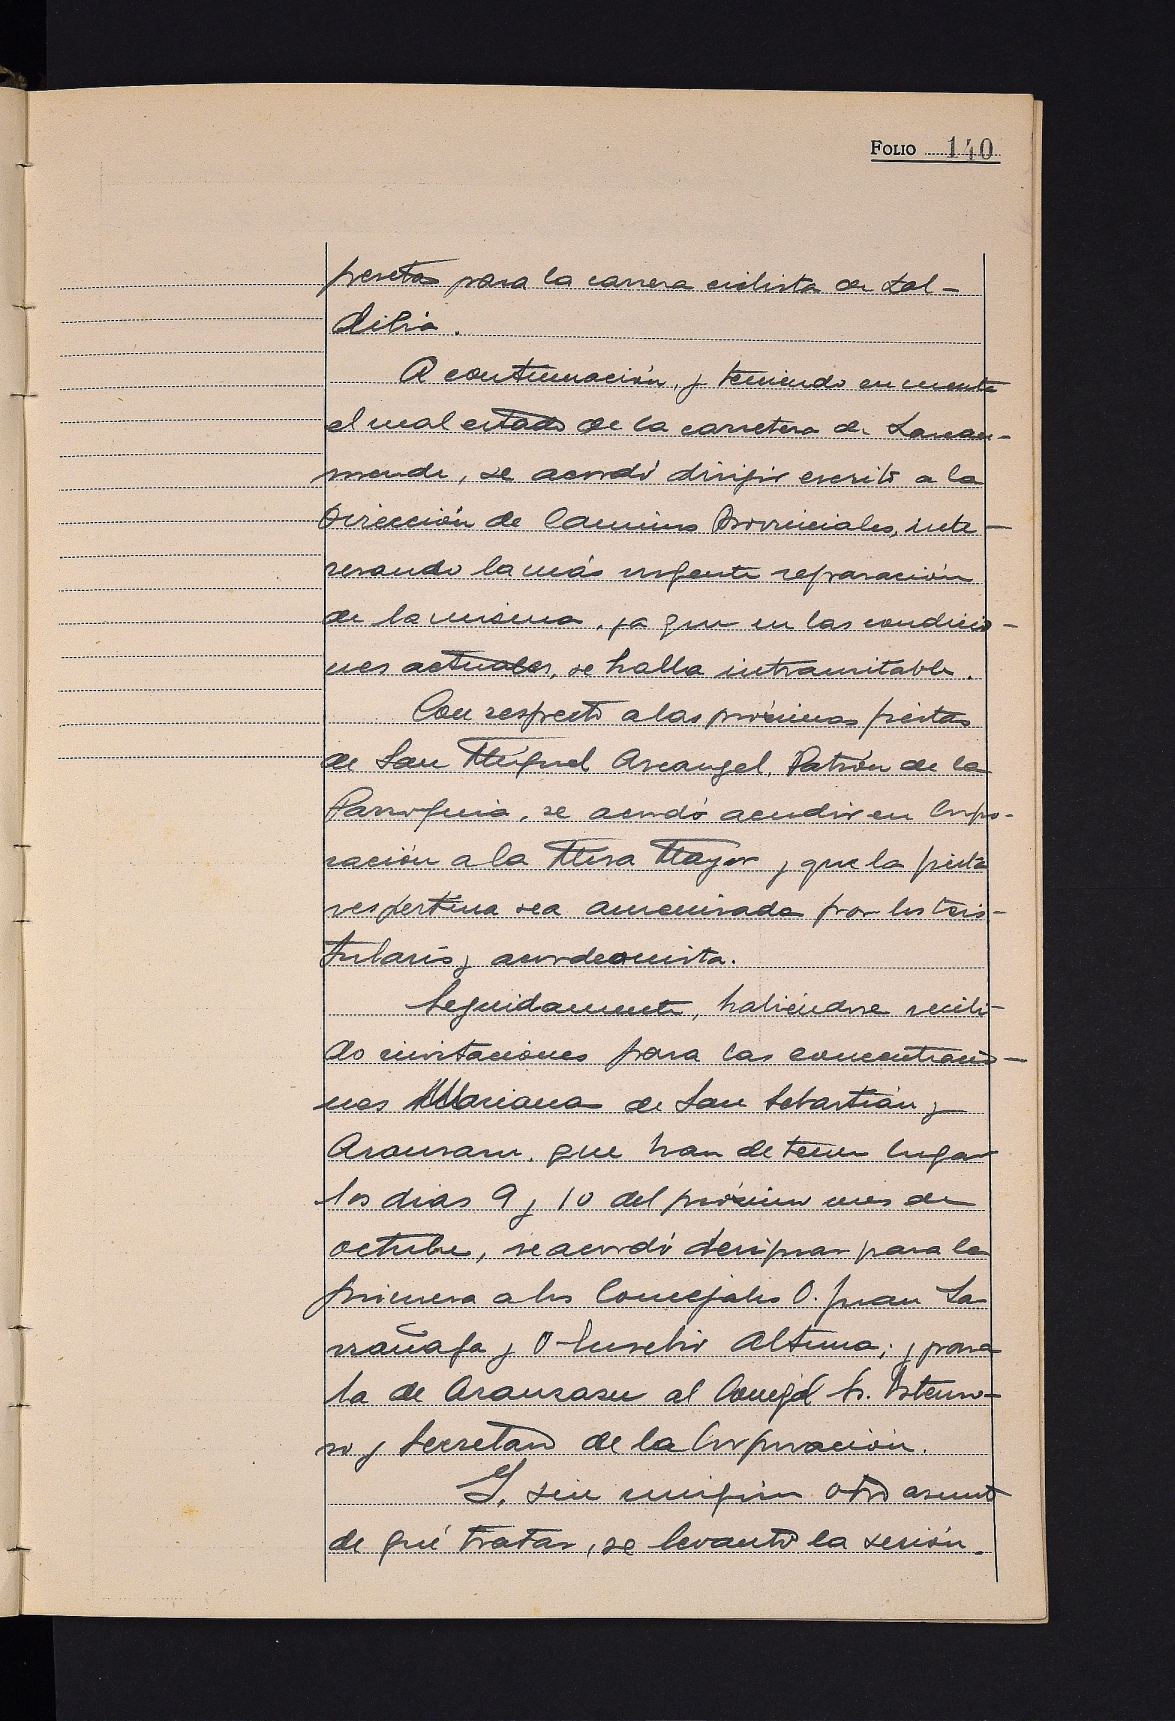 FOLIO 140
pesetas para la carrera ciclista de Zal-
dibia.
A continuación, y teniendo en cuenta
el mal estado de la carretera de Lazcau-
mendi, se acordó dirigir escrito a la
Dirección de Caminos Provinciales, inte-
resando la más urgente reparación
de la misma, ya que en las condicio-
nes actuales, se halla intransitable.
Con respecto a las próximas fiestas
de San Miguel Arcangel, Patrón de la
Parroquia, se acordó acudir en Corpo-
ración a la Misa Mayor y que la fiesta
vespertina sea amenizada por los txis-
tularis y acordeonista.
Seguidamente, habiéndose recibi-
do invitaciones para las concentracio-
nes Mariana de San Sebastián y
Aranzazu, que han de tener lugar
los dias 9 y 10 del próximo mes de
octubre, se acordó designar para la
primera a los Concejales D. Juan La-
rrañaga y D Eusebio Altuna; y para
la de Aranzazu al Concejal Sr.
y Secretario de la Corporación.
Y, sin ningún otro asunto
de qué tratar, se levantó la sesión.